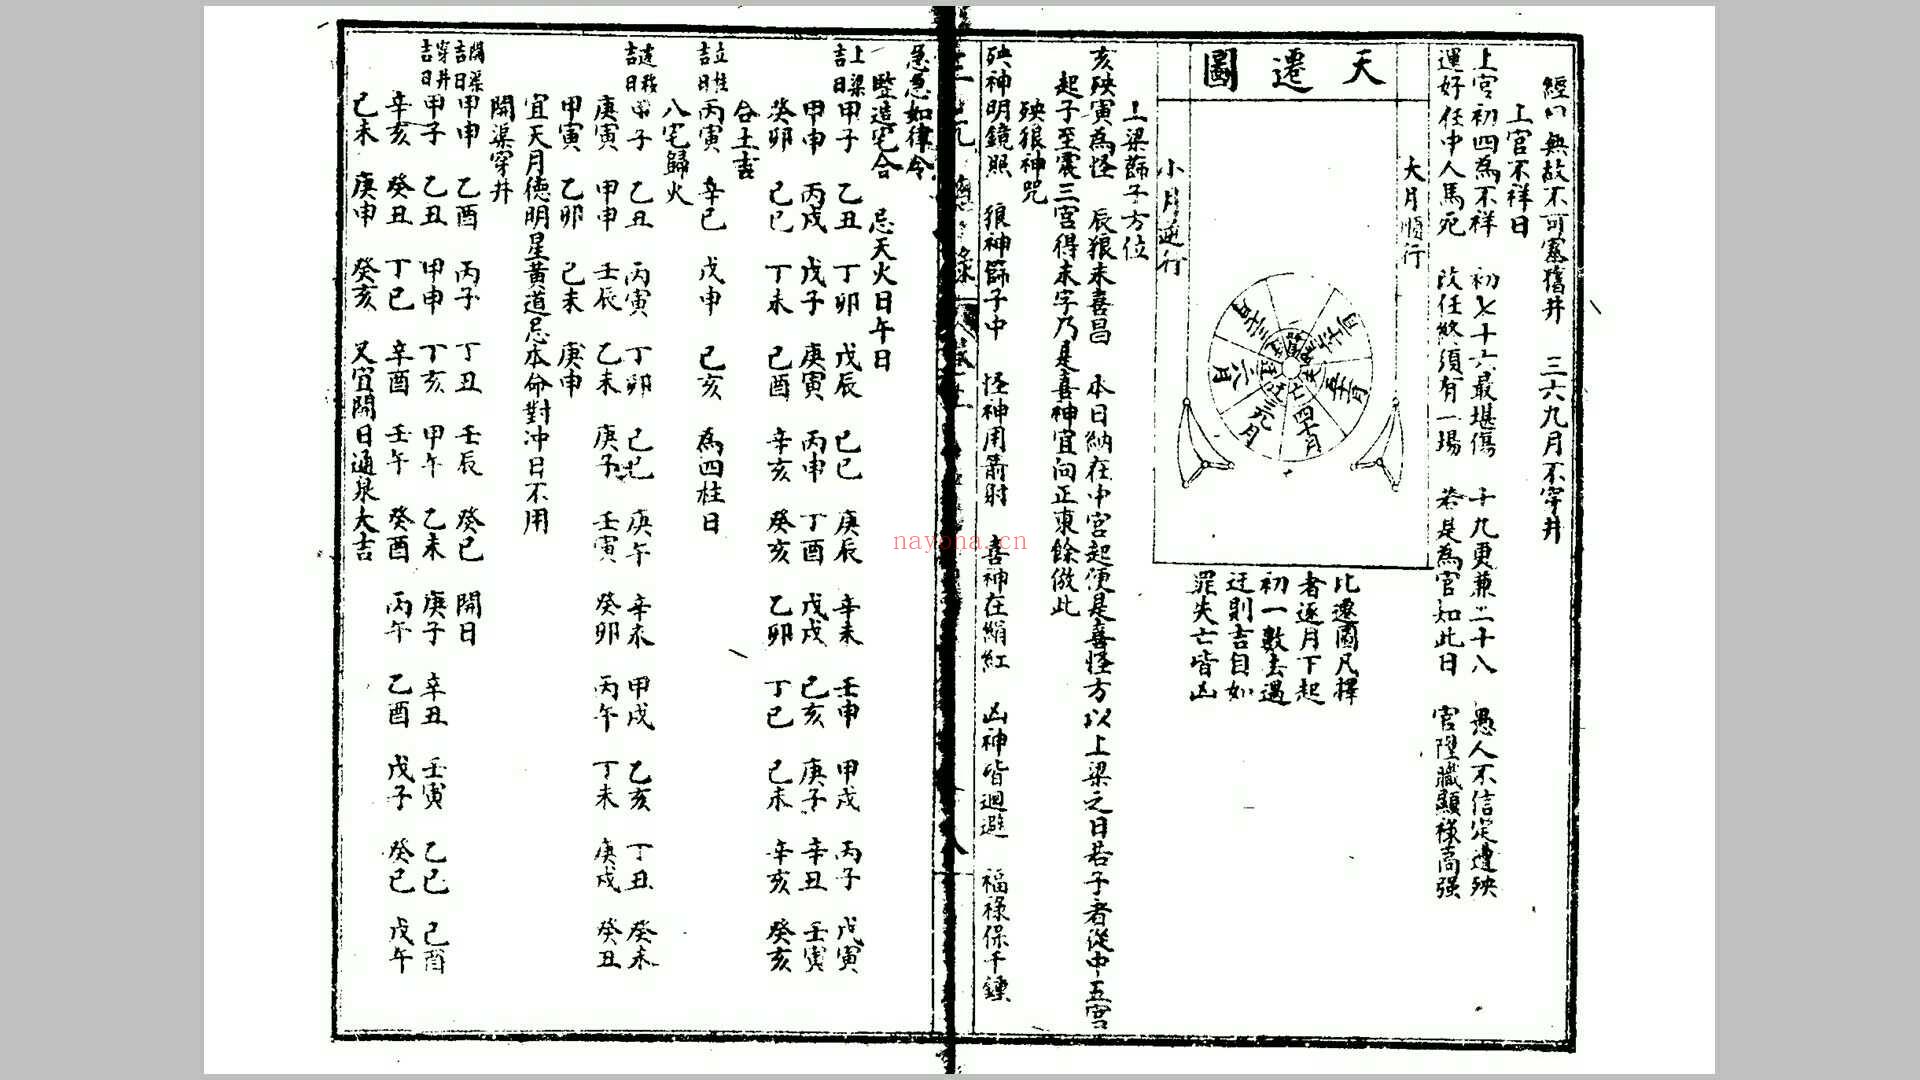 經曰無故不可塞舊井　三六九月不穿井
上官不祥日
上官初四為不祥　初七十六最堪傷　十九更兼二十八　愚人不信定遭殃
運好任中人馬死　改任終須有一場　若是為官知此日　官陞職顯祿高强
天遷圖
大月順行
小月逆行
六月
比遷圖凡擇
者逐月下起
初一數去遇
迁則吉自如
罪失亡皆凶
上梁篩子方位
亥殃寅為怪　辰狼未喜昌　本日納在中宮起便是喜怪方以上梁之日若子者從中五宮
起子至震三宮得未字乃是喜神宜向正東餘倣此
殃狼神咒
殃神明鏡照　狼神篩子中　怪神用箭射　喜神在絹紅　凶神皆迴避　福祿保千鍾
急急如律令
豎造宅合　忌天火日午日
上梁吉日
甲子　乙丑　丁卯　戊辰　己巳　庚辰　辛未　壬申　甲戌　丙子　戊寅
甲申　丙戌　戊子　庚寅　丙申　丁酉　戊戌　己亥　庚子　辛丑　壬寅
癸卯　己巳　丁未　己酉　辛亥　癸亥　乙卯　丁巳　己未　辛亥　癸亥
合土吉
立柱吉日
丙寅　辛巳　戊申　己亥　為四柱日
八宅歸火
吉日
甲子　乙丑　丙寅　丁卯　己巳　庚午　辛未　甲戌　乙亥　丁丑　癸未
庚寅　甲申　壬辰　乙未　庚子　壬寅　癸卯　丙午　丁未　庚戌　癸丑
甲寅　乙卯　己未　庚申
宜天月德明星黃道忌本命對冲日不用
開渠穿井
開渠吉日
甲申　乙酉　丙子　丁丑　壬辰　癸巳　開日
穿井吉日
甲子　乙丑　甲申　丁亥　甲午　乙未　庚子　辛丑　壬寅　乙巳　己酉
辛亥　癸丑　丁巳　辛酉　壬午　癸酉　丙午　乙酉　戊子　癸巳　戊午
己未　庚申　癸亥　又宜開日通泉大吉
nayona.cn